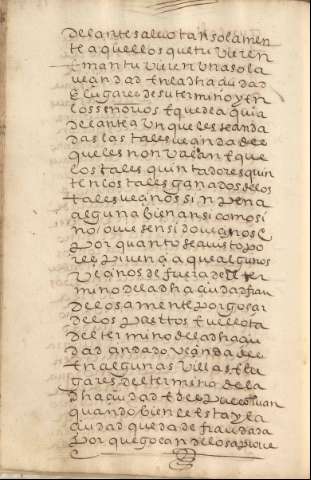 delante salvo tan solamen
te a aquellos que tuvieren
e mantuvieren una sola
vezindad en la dha ciudad
e lugares de su termino y en
los señorios e que de aqui a
delante aunque les sean da
das las tales vezindades
que les non valan e que
los tales quintadores quin
ten los tales ganados de los
tales vezinos sin pena
alguna bien ansi como si
no fuesen sido vezinos e
por quanto se a visto po
r espiriençia que algunos
vezinos de fuera del ter
mino de la dha ciudad frau
delosamente por gozar
de los pastos e vellota
del termino de la dha çiu
dad an dado vezindades
en algunas villas e lu
gares del termino de la
dha çiudad e despues con
quando bien le esta y la
ciudad queda defraudada
porque gozan de los aprove